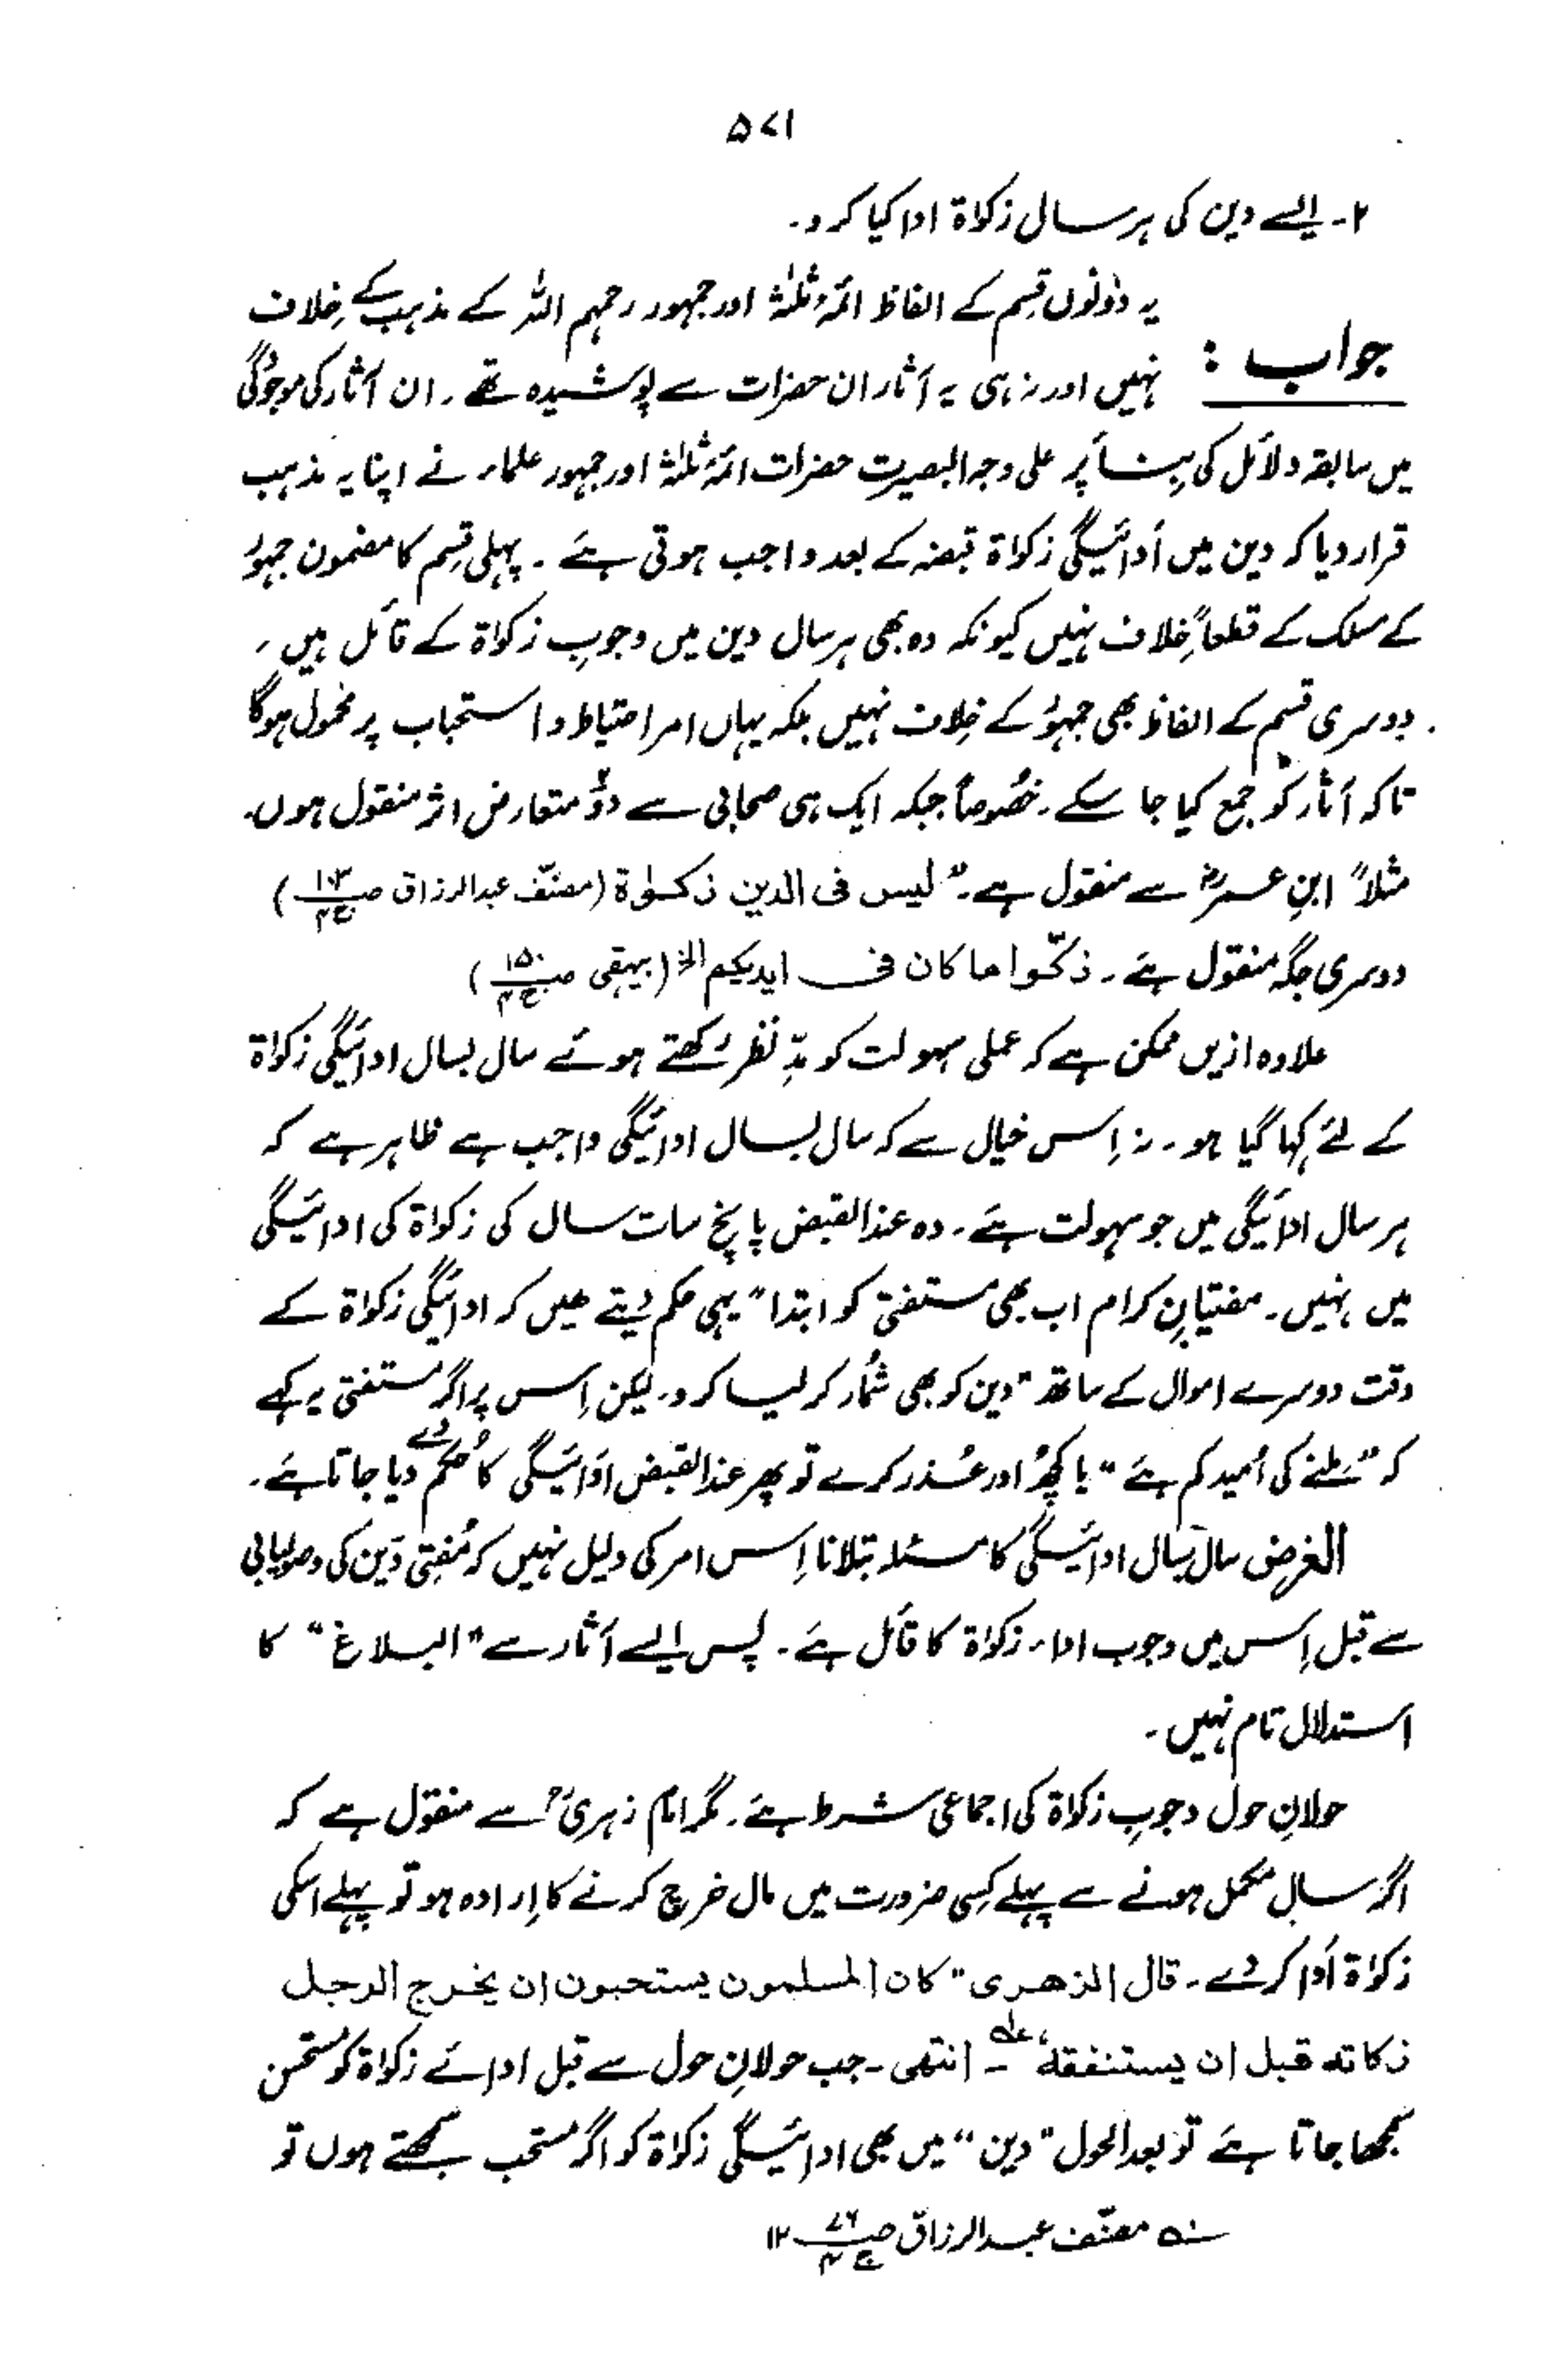 ۵۷۱
۲۔ ایسے دین کی ہر سال زکواۃ ادا کیا کرو۔
یہ دونوں قسم کے الفاظ ائمۂ ثلٰثۃ اور جمہور رحمہم اللہ کے مذہب کے خِلاف
جواب : نہیں اور نہ ہی یہ آثار ان حضرات سے پوشیدہ تھے۔ ان آثار کی موجودگی
میں سابقہ دلائل کی بِنا پر علی وجہ البصیرت حضرات ائمۂ ثلٰثۃ اور جمہور علماء نے اپنا یہ مذہب
قرار دیا کہ دین میں اَدائیگی زکواۃ قبضہ کے بعد واجب ہوتی ہے۔ پہلی قِسم کا مضمون جمہوُر
کے مسلک کے قطعاً خِلاف نہیں کیونکہ وہ بھی ہر سال دین میں وجوبِ زکواۃ کے قائل ہیں،
دوسری قسم کے الفاظ بھی جمہوُر کے خِلاف نہیں بلکہ یہاں امر احتیاط و استحباب پر محمول ہوگا
تاکہ آثار کو جمع کیا جا سکے۔ خصُوصاً جبکہ ایک ہی صحابی سے دوُ متعارض اثر منقول ہوں۔
مثلاً ابنِ عمرؓ سے منقول ہے۔ "لیس فی الدین زکوٰۃ (مصنّف عبدالرزاق ص۱۰۳ ج۴)
دوسری جگہ منقول ہے۔ زکّوا ما کان فی ایدیکم الخ (بیہقی ص۱۵۰ ج۴)
علاوہ ازیں ممکن ہے کہ عملی سہولت کو مدِّ نظر رکھتے ہوئے سال بسال ادائیگی زکواۃ
کے لئے کہا گیا ہو۔ نہ اِس خیال سے کہ سال بسال ادائیگی واجب ہے ظاہر ہے کہ
ہر سال ادائیگی میں جو سہولت ہے۔ وہ عندالقبض پانچ سات سال کی زکواۃ کی ادائیگی
میں نہیں۔ مفتیانِ کرام اب بھی مستفتی کو ابتداءً یہی حکم دیتے ھیں کہ ادائیگی زکواۃ کے
وقت دوسرے اموال کے ساتھ "دین کو بھی شمُار کر لیا کرو۔ لیکن اِس پر اگر مُستفتی یہ کہے
کہ "ملنے کی اُمید کم ہے" یا کچھُ اور عُذر کرے تو پھر عندالقبض اَدائیگی کا حُکم دے دیا جاتا ہے۔
الغرض سال بسال ادائیگی کا مسئلہ بتلانا اِس امر کی دلیل نہیں کہ مُفتی دَین کی وصولیابی
سے قبل اِس میں وجوب اداء زکواۃ کا قائل ہے۔ پس ایسے آثار سے "البلاغ" کا
استدلال تام نہیں۔
حولانِ حول وجوبِ زکواۃ کی اجماعی شرط ہے۔ مگر امام زہریؒ سے منقول ہے کہ
اگر سال مکمل ہونے سے پہلے کِسی ضرورت میں مال خرچ کرنے کا اِرادہ ہو تو پہلے اسکی
زکواۃ اَدا کر دے۔ قال الزھری "کان المسلمون یستحبون ان یخرج الرجل
زکاتہ قبل ان یستنفقہ" ؎ ۔ انتھی۔ جب حولانِ حول سے قبل ادائے زکواۃ کو مُستحسن
سمجھا جاتا ہے تو بعد الحول "دین" میں بھی ادائیگی زکواۃ کو اگر مُستحب سمجھتے ہوں تو
؎ مصنّف عبدالرزاق ص۷۶ ج۴ ۱۲